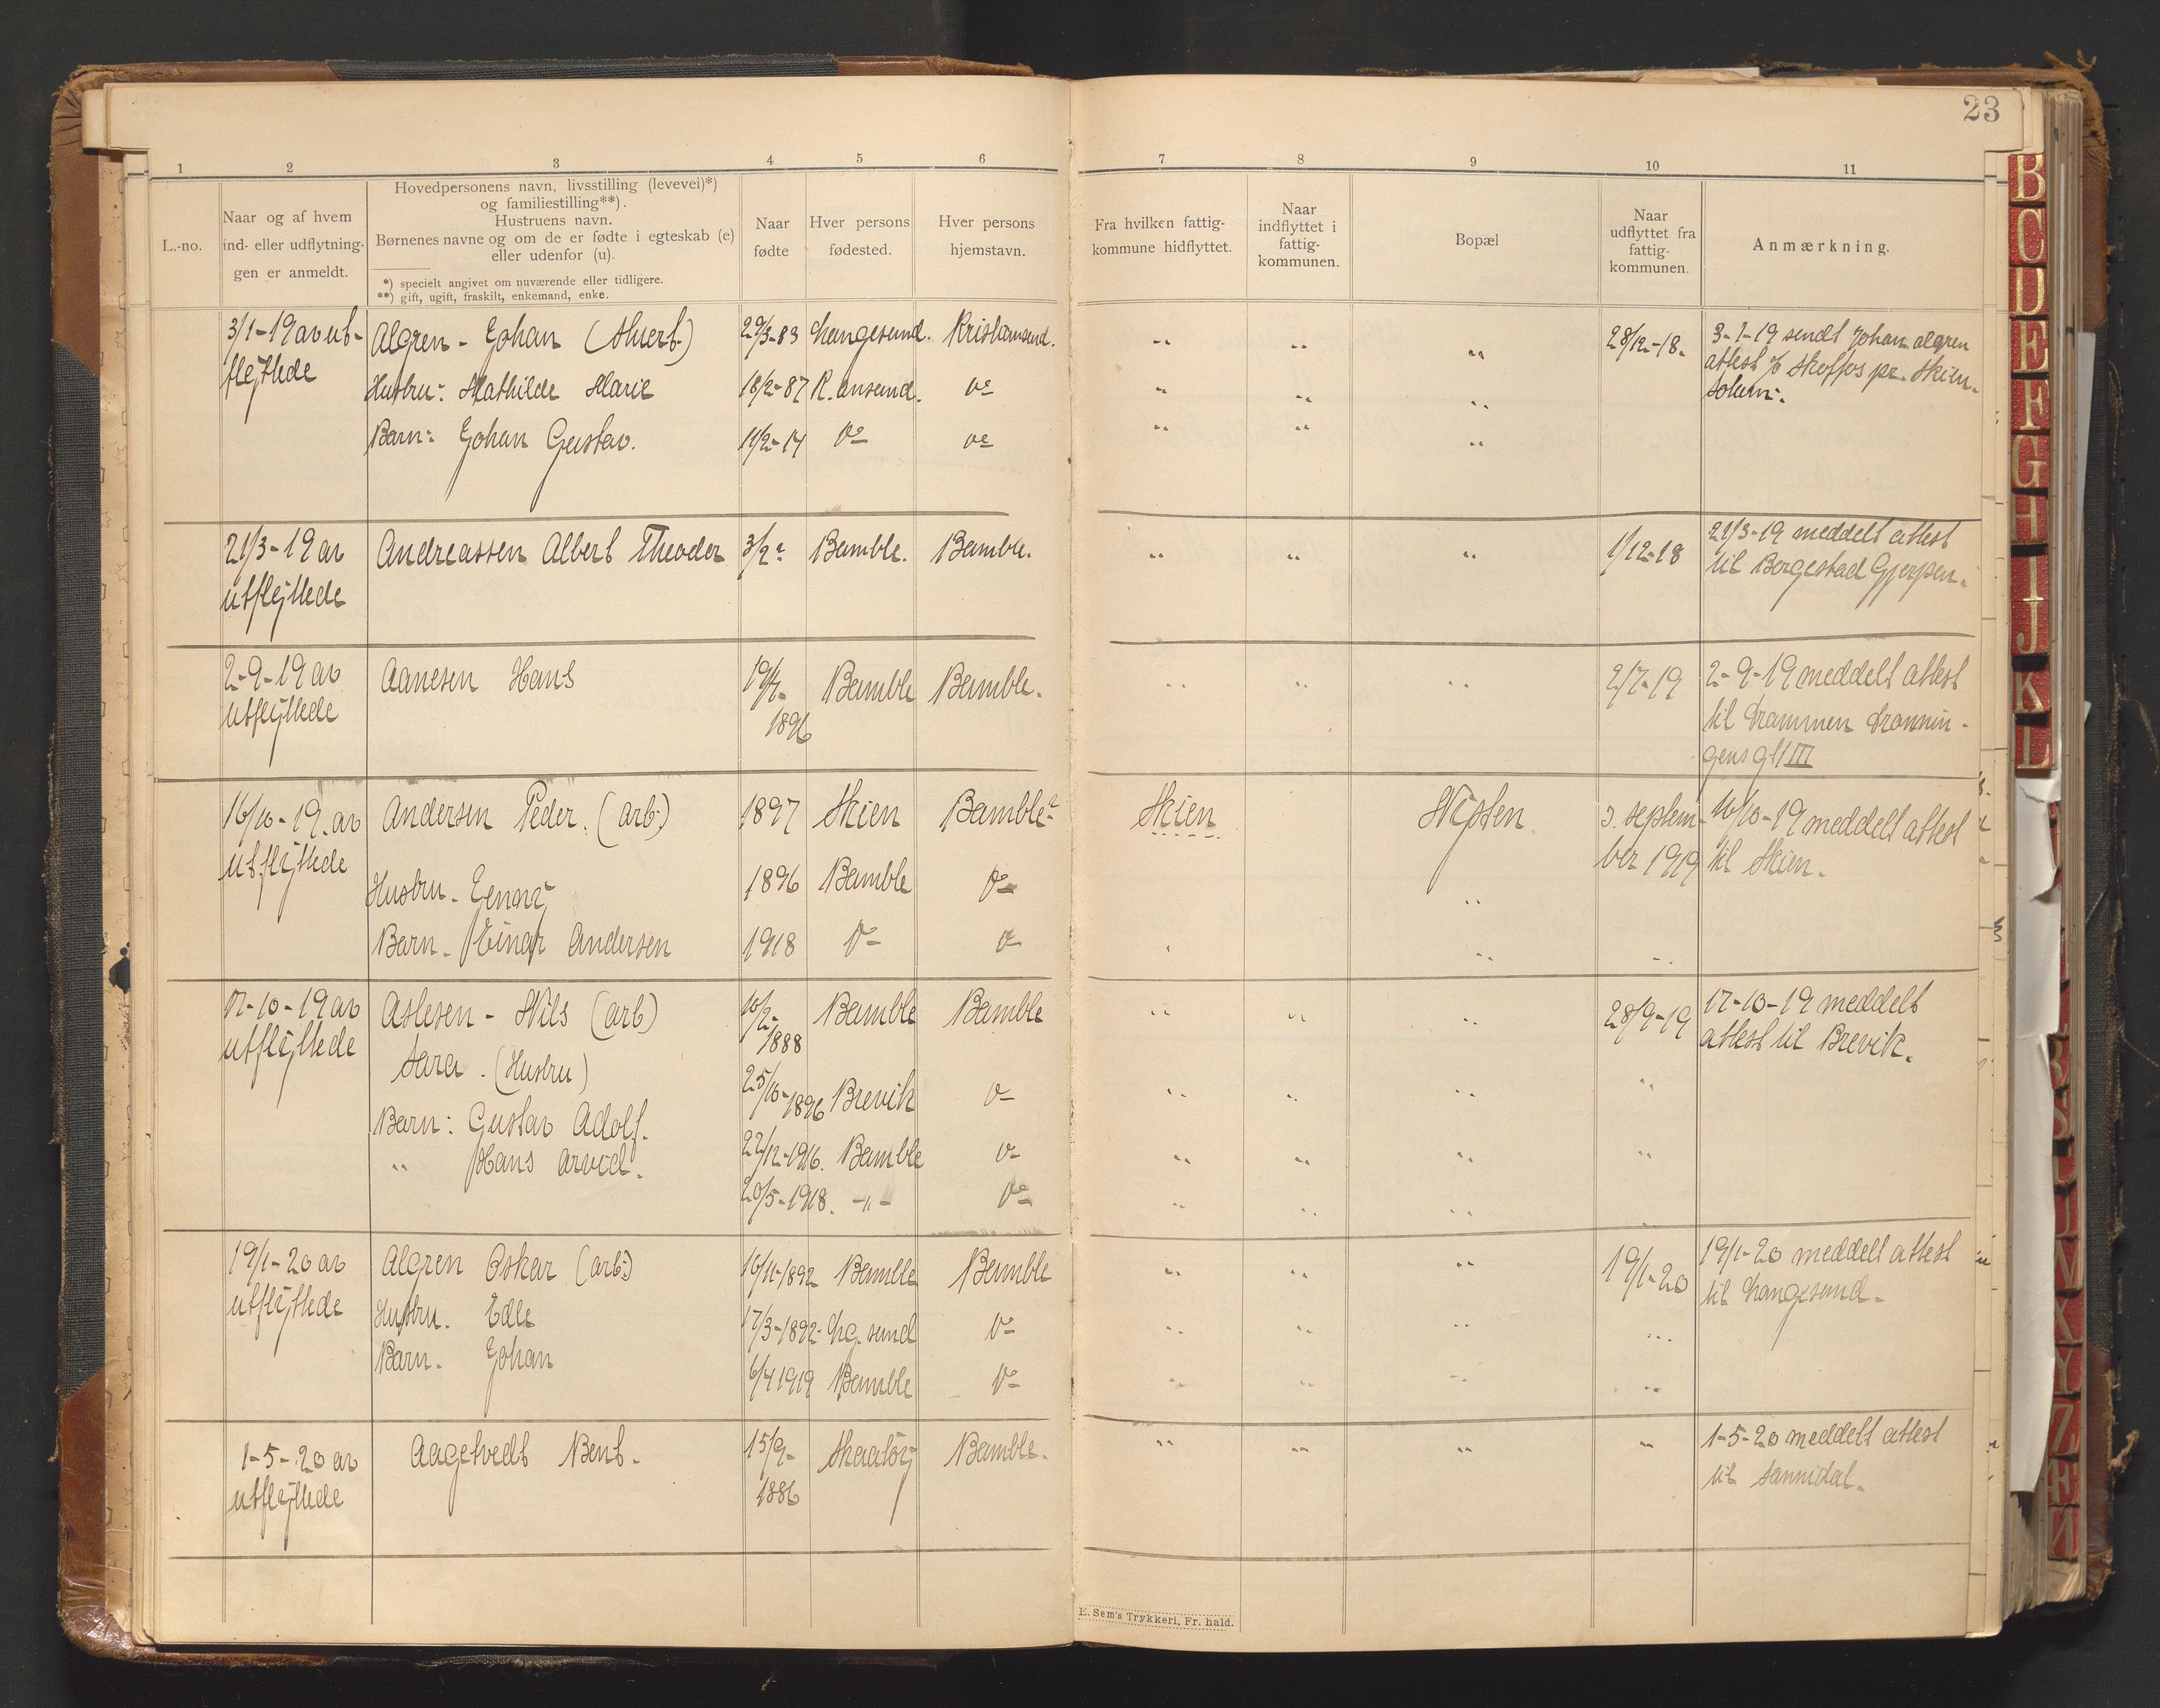 23
1 2 3 4 5 6 7 8 9 10 11
L.-no.
Naar og af hvem
ind- eller udflytning-
gen er anmeldt.
Hovedpersonens navn, livsstilling (levevei)*)
og familiestilling**).
Hustruens navn.
Børnenes navne og om de er fødte i egteskab (e)
eller udenfor (u).
*) specielt angivet om nuværende eller tidligere.
**) gift, ugift, fraskilt, enkemand, enke.
Naar
fødte
Hver persons
fødested.
Hver persons
hjemstavn.
Fra hvilken fattig-
kommune hidflyttet.
Naar
indflyttet i
fattig-
kommunen.
Bopæl
Naar
udflyttet fra
fattig-
kommunen.
Anmærkning.
3/1-19 av ut-
flyttede
Algren - Johan 29/3-83 Langesund. Kristiansund. " " " 28/12-18.
3-1-19 sendt Johan Algren
attest Skotfos pr. Skien.
Solum.
Hustru: Mathilde Marie 18/2-87 K.ansund. Do " " "
Barn: Johan Gustav. 11/2-14 Do Do " " "
21/3-19 av
utflyttede
Andreassen Albert Theoder 3/2 Bamble. Bamble. " " " 1/12-18
21/3-19 meddelt attest
til Borgestad Gjerpen.
2-9-19 av
utflyttede
Aanesen Hans 19/7-
1896
Bamble Bamble. " " " 2/7-19
2-9-19 meddelt attest
til Drammen Dronnin-
gens gt III
16/10-19. av
utflyttede
Andersen Peder. (arb.) 1897 Skien Bamble? Skien Nipten 3. septem-
ber 1919
16/10-19 meddelt attest
til Skien.
Hustru. Emma 1896 Bamble Do "
Barn. Einar Andersen 1918 Do Do " "
17-10-19 av
utflyttede
Aslesen - Nils (arb) 10/2-
1888
Bamble Bamble " " " 28/9-19
17-10-19 meddelt
attest til Brevik.
Sara. (Hustru) 25/10-1896 Brevik Do " " " "
Barn: Gustav Adolf. 22/12-1916. Bamble Do " " " "
" Hans Arvid. 20/5-1918. -"- Do " " "
19/1-20 av
utflyttede
Algren Oskar (arb.) 16/11-1892 Bamble Bamble " " " 19/1-20
19/1-20 meddelt attest
til Langesund.
Hustru. Edle 17/3-1892- Lg.sund Do " " " "
Barn. Johan 6/4 1919 Bamble Do " " " "
1-5-20 av
utflyttede
Aagetvedt Bent. 15/9-
1886
Skaatøy Bamble. " " " "
1-5-20 meddelt attest
til Sannidal.
E. Sem's Trykkeri, Fr. hald.
B
C
D
E
F
G
H
I
J
K
L
X
Y
Z
Æ